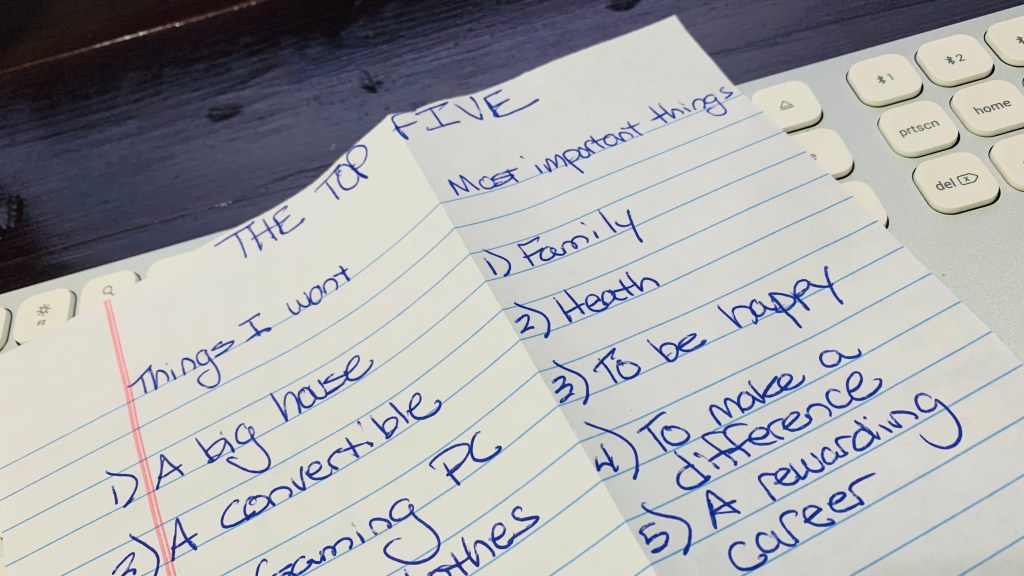 THE TOP FIVE
Things I want
1) A big house
2) A convertible
Gaming PC
Most important things
1) Family
2) Heath
3) To be happy
4) To make a
difference
5) A rewarding
career
1
2
home
prtscn
del